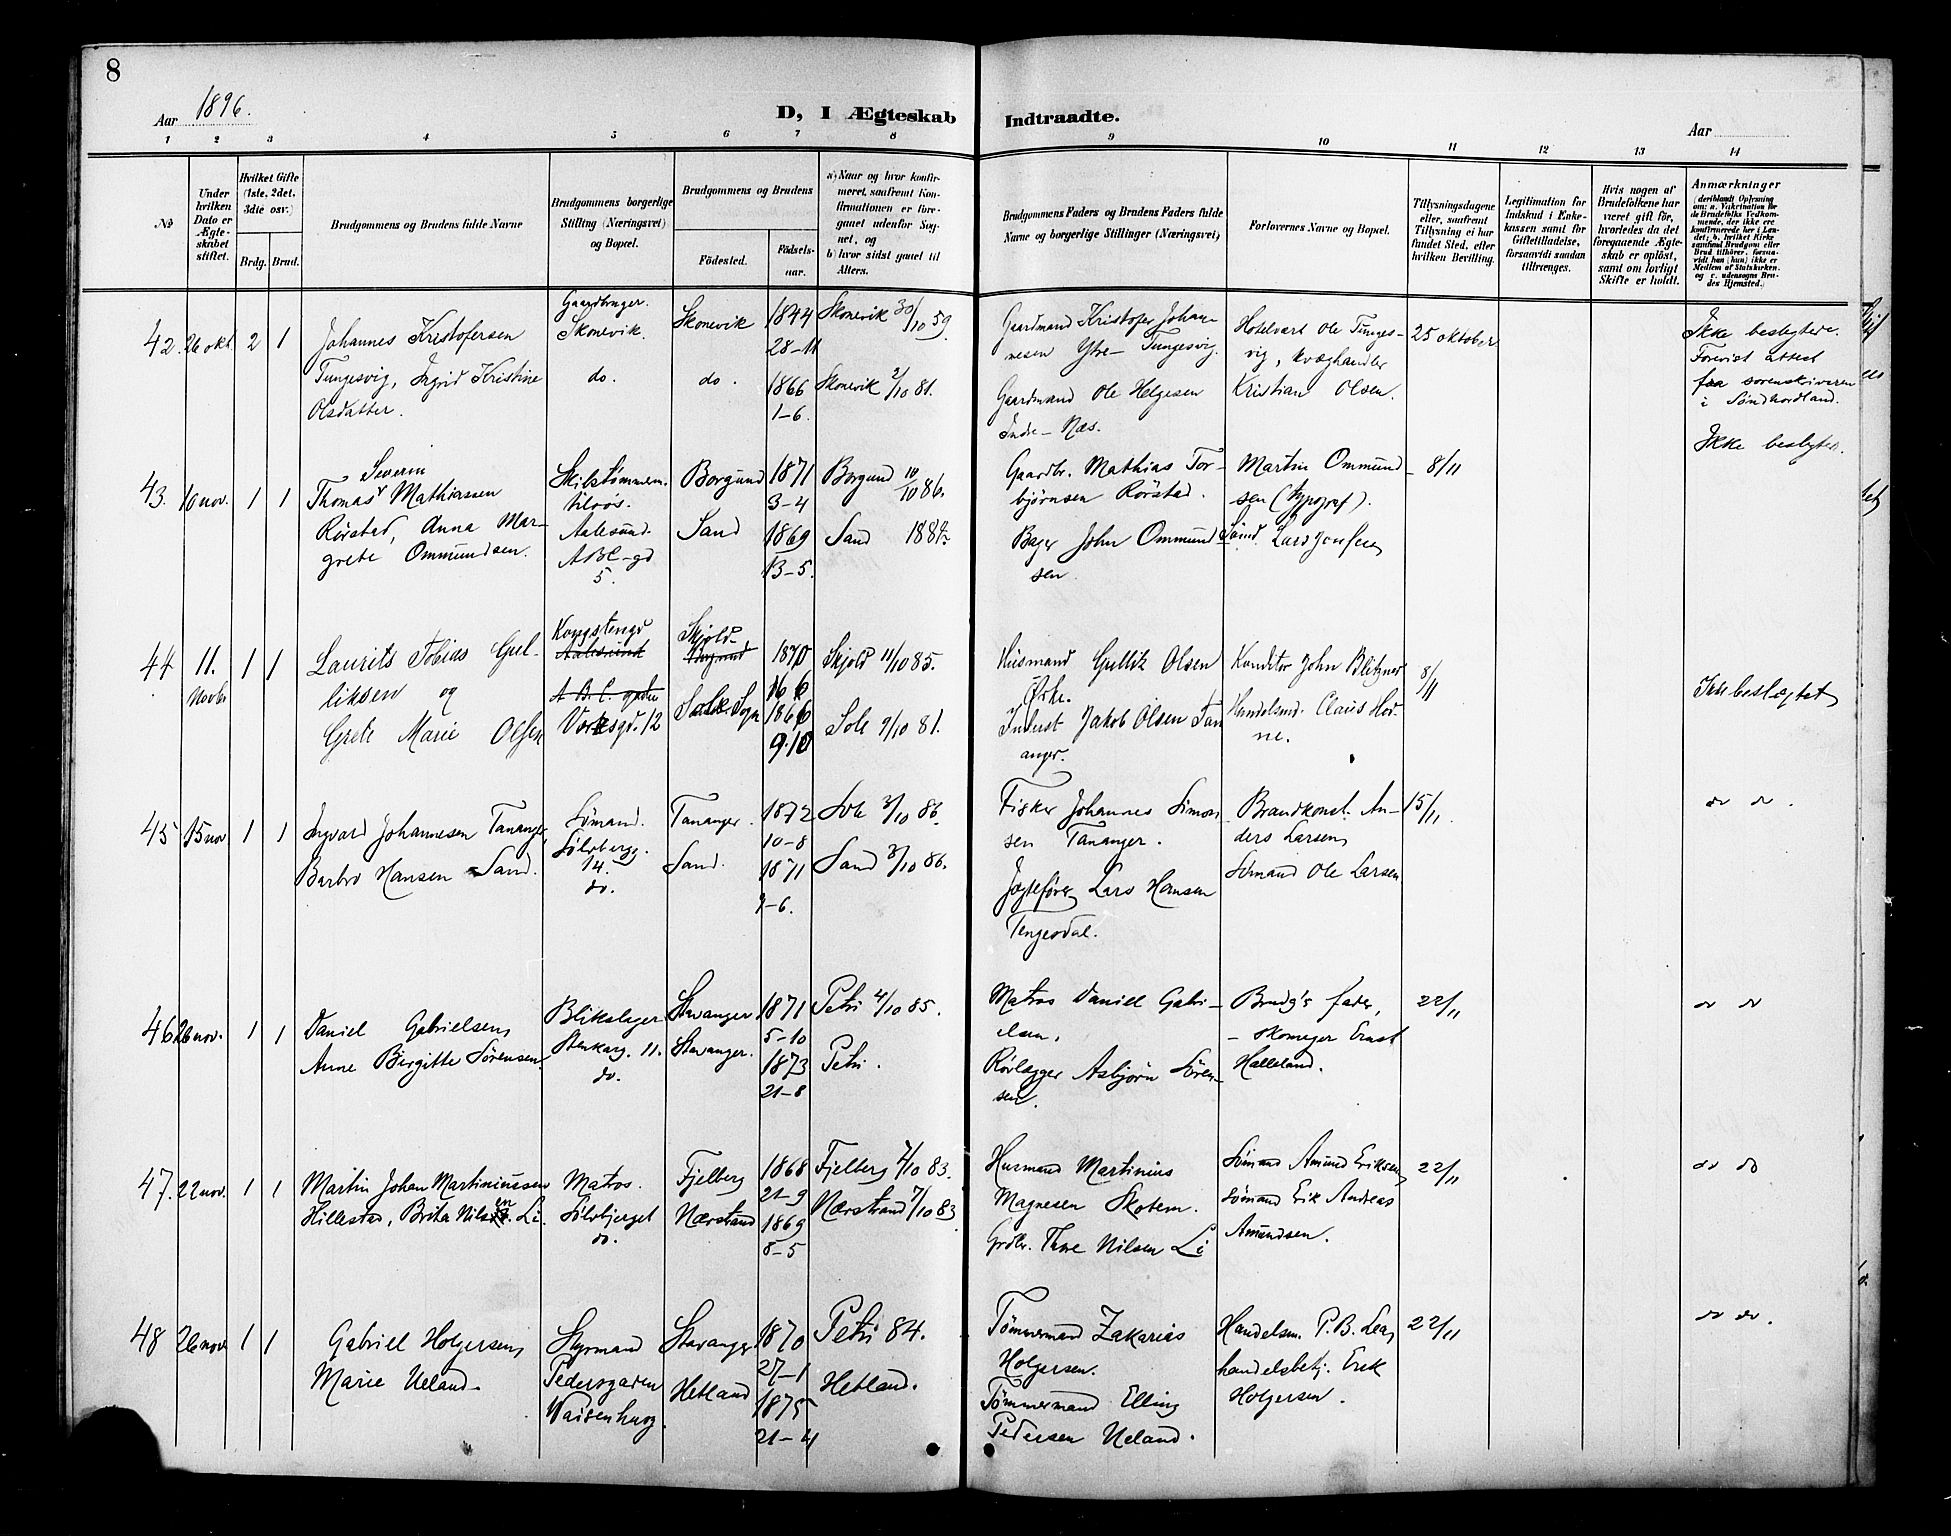 8
Aar 1896.
D, I Ægteskab Indtraadte.
Aar
1 2 3 4 5 6 7 8 9 10 11 12 13 14
№
Under hvilken Dato er Ægteskabet stiftet.
Hvilket Gifte (1ste, 2det, 3die osv.)
Brdg. Brud.
Brudgommens og Brudens fulde Navne
Brudgommens borgerlige Stilling (Næringsvei) og Bopæl.
Brudgommens og Brudens
Födested.
Födselsaar.
a) Naar og hvor konfirmeret, saafremt Konfirmationen er foregaaet udenfor Sognet, og
b) hvor sidst gaaet til Alters.
Brudgommens Faders og Brudens Faders fulde Navne og borgerlige Stillinger (Næringsvei)
Forlovernes Navne og Bopæl.
Tillysningsdagene eller, saafremt Tillysning ei har fundet Sted, efter hvilken Bevilling.
Legitimation for Indskud i Enkekassen samt for Giftetilladelse, forsaavidt saadan tiltrænges.
Hvis nogen af Brudefolkene har været gift før, hvorledes da det foregaaende Ægteskab er oplöst, samt om lovligt Skifte er holdt.
Anmærkninger
(deriblandt Oplysning om: a. Vakcination for de Brudefolks Vedkommende, der ikke ere konfirmerede her i Landet; b. hvilket Kirkesamfund Brudgom eller Brud tilhörer, forsaavidt han (hun) ikke er Medlem af Statskirken, og c. udensogns Brudes Hjemsted.)
42. 26 okt. 2 1
Johannes Kristofersen
Tungesvig, Ingrid Kristine
Olsdatter.
Gaardbruger.
Skonevik.
do.
Skonevik
do.
1844
28–11
1866
1–6.
Skonevik 30/10 59.
Skonevik 2/10 81.
Gaardmand Kristofer Johan-
nesen Ytre– Tungesvig.
Gaardmand Ole Helgesen
Indre– Næs.
Hotelvært Ole Tunges-
vig, kvæghandler
Kristian Olsen.
25 oktober
Ikke beslegtede.
Forevist attest
fra sorenskriveren
i Søndhordland.
43. 10 nov. 1 1
Severin
Thomas Mathiassen
Rørstad, Anna Mar-
grete Ommundsen.
Skibstømmerm.
tilvös.
Aalesund.
ABC–gd
5.
Borgund
Sand
1871
3–4
1869
13–5.
Borgund 10/10 86.
Sand 1884.
Gaardbr. Mathias Tor-
bjørnsen Rörstad.
Bager John Ommund-
sen.
Martin Ommund-
sen (typograf).
8/11
Ikke beslegtet.
44 11. Novbr 1 1
Laurits Tobias Gul-
liksen og
Grete Marie Olsen
Kongstengd
Aalesund
A B C. gaden
Verksgd. 12
Skjold
Borgund
Sole Sogn
1870
16 6
1866
9.10
Skjold 11/10 85.
Sole 9/10 81.
Husmand Gullik Olsen
Ørke.
Inderst Jakob Olsen Tan
anger.
Konditor John Blitzner
Handelsmd. Claus Hod-
ne.
8/11
Ikke beslægtet
45 15 nov 1 1
Ingvald Johannesen Tananger,
Barbro Hansen Sand.
Sømand.
Sølvbergg.
14.
do.
Tananger.
Sand.
1872
10–8
1871
9–6.
Sole 3/10 86.
Sand 3/10 86.
Fisker Johannes Simon-
sen Tananger.
Jagtefører Lars Hansen
Tengesdal.
Brandkonst. An-
ders Larsen,
Sömand Ole Larsen
15/11.
do do.
46 26 nov. 1 1
Daniel Gabrielsen,
Anne Birgitte Sørensen.
Blikslager
Stenkarg. 11.
do.
Stavanger
Stavanger.
1871
5–10
1873
21–8
Petri 4/10 85.
Petri.
Matros Daniel Gabri-
elsen.
Rørlægger Asbjørn Søren-
sen.
Brudg's fader,
– skomager Ernst
Halleland.
22/11
do do
47. 22 nov. 1 1
Martin Johan Martiniussen
Hillestad, Brita Nilsen Li.
Matros.
Sölvbjerget
do.
Fjelberg
Nærstrand
1868
21–9
1869
8–5
Fjelberg 7/10 83.
Nærstrand 7/10 83.
Husmand Martinius
Magnesen Skotem.
Grdbr. Thore Nilsen Li
Sömand Amund Eriksen,
sömand Erik Andreas
Amundsen.
22/11
do do
48 26 nov 1 1
Gabriel Holgersen,
Marie Ueland.
Styrmand
Pedersgaden
Waisenhusg.
Stavanger
Hetland
1870
27–1
1875
21–4
Petri 84.
Hetland.
Tömmermand Zakarias
Holgersen.
Tömmermand Elling
Pedersen Ueland.
Handelsm. P. B. Lea,
handelsbetj. Erik
Holgersen.
22/11
do do.